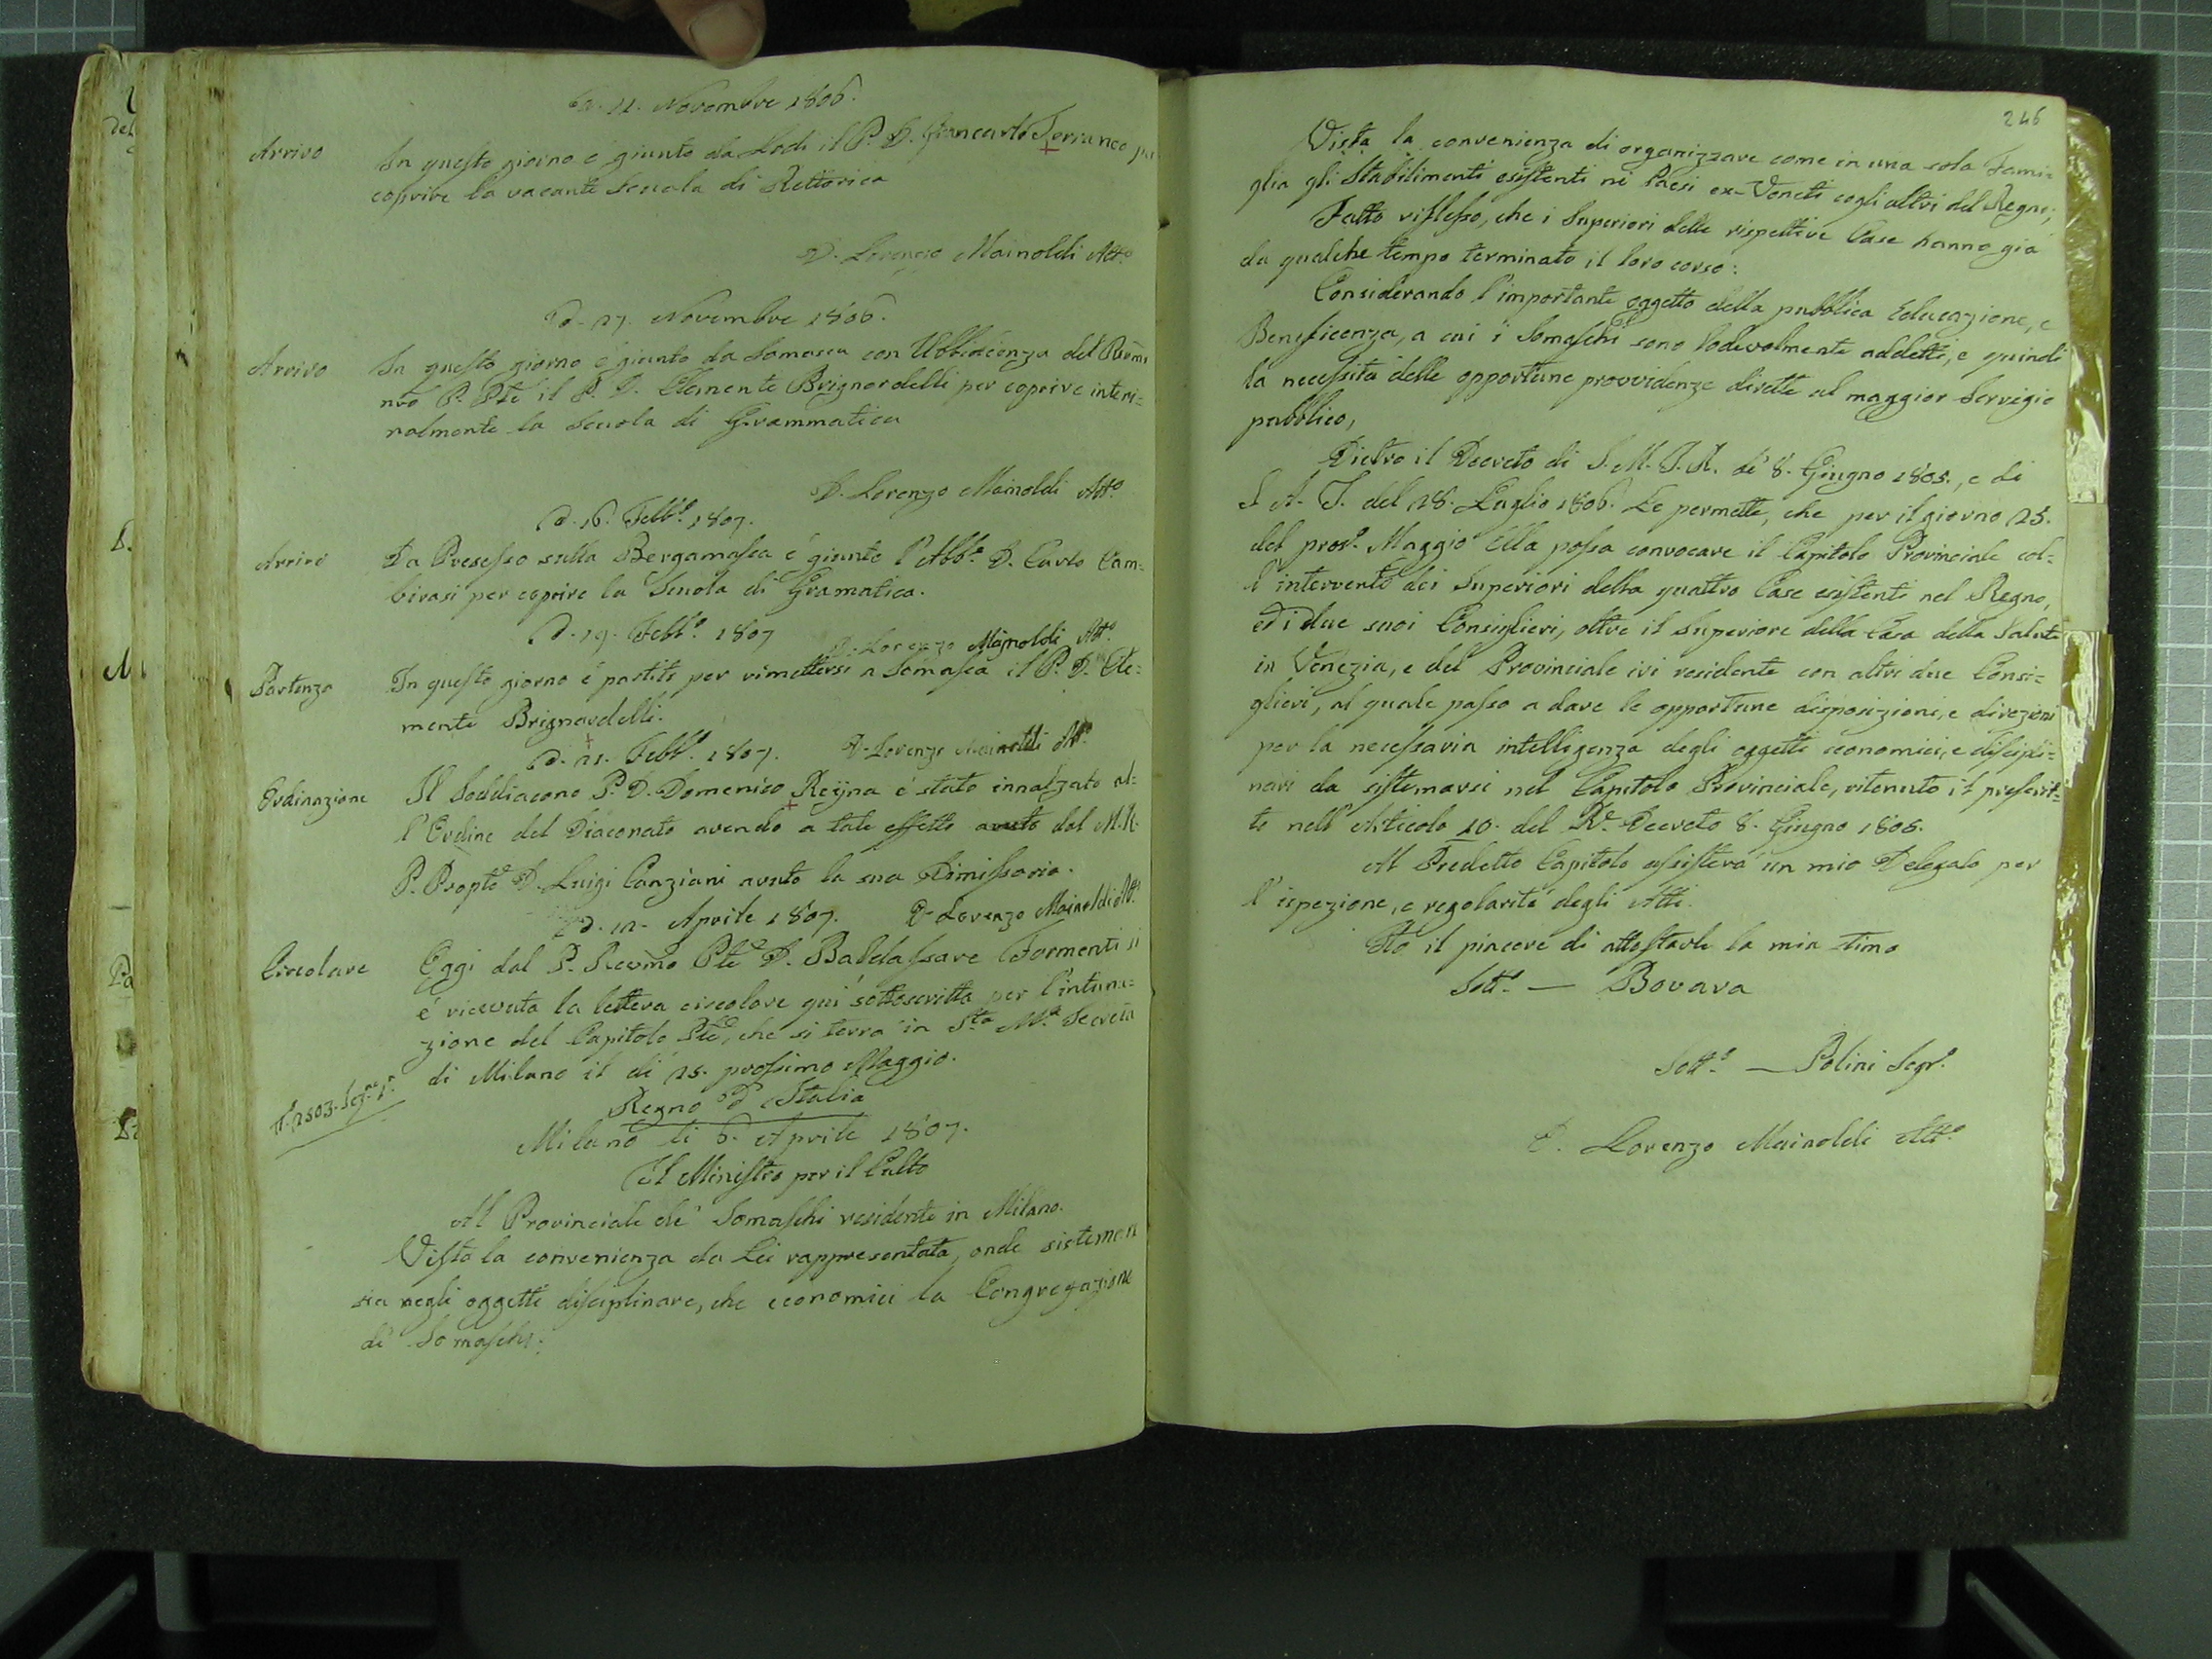 D. 11. Novembre 1806.
Arrivo
In questo giorno é giunto da Lodi il P. D. Giancarlo Terraneo per
coprire la vacante Scuola di Rettorica
D. Lorenzo Mainoldi Att.o
D. 27. Novembre 1806.
Arrivo
In questo giorno é giunto da Somasca con Ubbidienza del Rm̃o
nr̃o P. Ple il P. D. Clemente Brignardelli per coprire interi=
nalmente la Scuola di Grammatica
D. Lorenzo Mainoldi Att.o
D. 16. Febb.o 1807.
Arrivo
Da Presesso sulla Bergamasca é giunto l'Abb.e D. Carlo Cam=
birasi per coprire la Scuola di Gramatica.
D. 19. Febb.o 1807
D. Lorenzo Mainoldi Att.o
Partenza
In questo giorno é partito per rimettersi a Somasca il P. D. Cle=
mente Brignardelli.
D. 21. Febb.o 1807.
D. Lorenzo Mainoldi Att.o
Ordinazione
Il Soddiacono P. D. Domenico Reÿna é stato innalzato al=
l'Ordine del Diaconato avendo a tale effetto avuto dal M. R.
P. Propto D. Luigi Canziani avuto la sua Dimissoria.
D. 12. Aprile 1807.
D. Lorenzo Mainoldi Att.o
Circolare
Oggi dal P. Revm̃o Ple D. Baldassare Formenti si
é ricevuta la lettera circolare qui sottoscritta per l'intima=
zione del Capitolo Ple, che si terrà in S.ta M.a Secreta
di Milano il dí 25. prossimo Maggio.
N. 2503. Sez.ne 1.a
Regno d'Italia
Milano li 6. Aprile 1807.
Il Ministro per il Culto
Al Provinciale de' Somaschi residente in Milano.
Vista la convenienza da Lei rappresentata, onde sistemar
sia negli oggetti disciplinare, che economici la Congregazione
de' Somaschi:
246
Vista la convenienza di organizzare come in una sola Fami=
glia gli Stabilimenti esistenti nei Paesi ex-Veneti cogli altri del Regno;
Fatto riflesso, che i Superiori delle rispettive Case hanno già
da qualche tempo terminato il loro corso:
Considerando l'importante oggetto della pubblica Educazione, e
Beneficenza, a cui i Somaschi sono lodevolmente addetti, e quindi
la necessità delle opportune provvidenze dirette al maggior Servigio
pubblico,
Dietro il Decreto di S. M. I. R. de' 8. Giugno 1805., e di
S. A. I. del 28. Luglio 1806. Le permette, che per il giorno 25.
del pros.o Maggio Ella possa convocare il Capitolo Provinciale col=
l'intervento dei Superiori della quattro Case esistenti nel Regno,
e di due suoi Consiglieri, oltre il Superiore della Casa della Salute
in Venezia, e del Provinciale ivi residente con altri due Consi=
glieri, al quale passo a dare le opportune disposizioni, e direzioni
per la necessaria intelligenza degli oggetti economici, e discipli=
nari da sistemarsi nel Capitolo Provinciale, ritenuto il prescrit=
to nell'Articolo 10. del R.e Decreto 8. Giugno 1805.
Al Predetto Capitolo assisterà un mio Delegato per
l'ispezione, e regolarità degli Atti.
Ho il piacere di attestarle la mia stima
Sott.o — Bovara
Sott.o — Polini Segr.o
D. Lorenzo Mainoldi Att.o